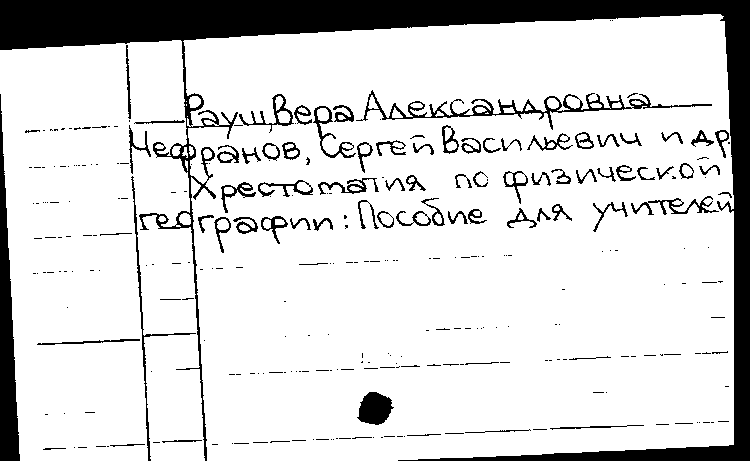 Рауш, Вера Александровна.
Чефранов, Сергей Васильевич и др.
Хрестоматия по физической
географии: Пособие для учителей